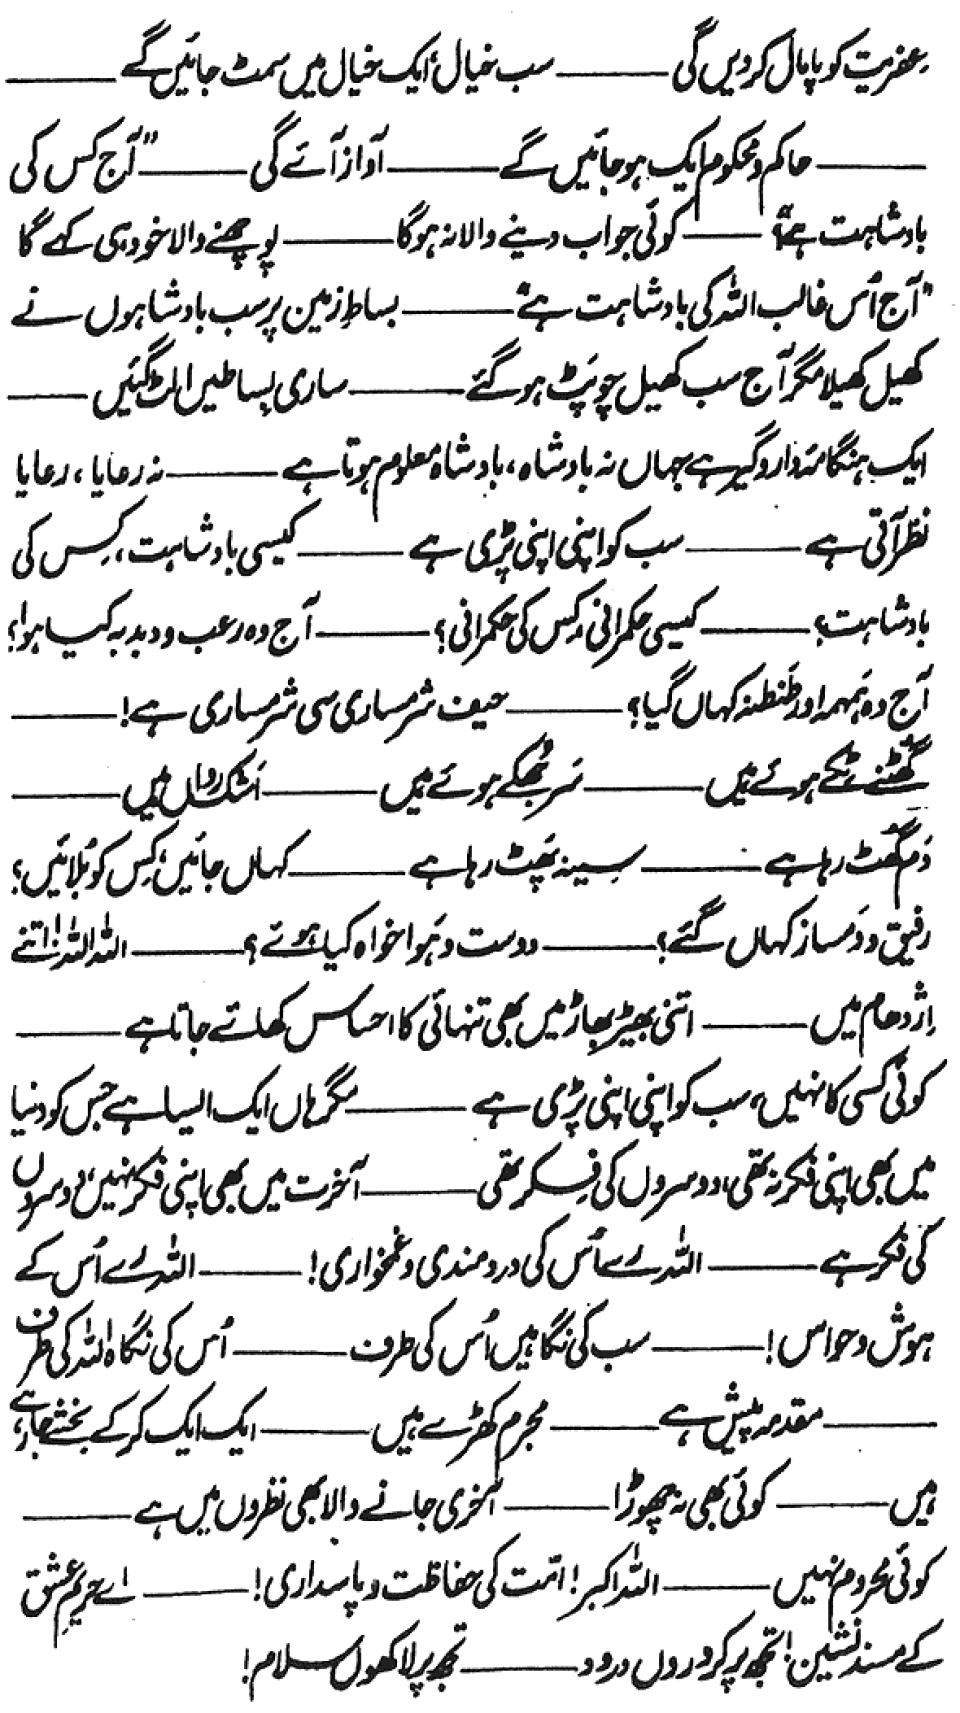 عفریت کو پامال کر دیں گی ——— سب خیال، ایک خیال میں سمٹ جائیں گے ———
——— حاکم و محکوم ایک ہو جائیں گے ——— آواز آئے گی ——— ”آج کس کی
بادشاہت ہے؟“ ——— کوئی جواب دینے والا نہ ہوگا ——— پوچھنے والا خود ہی کہے گا
”آج اُس غالب اللہ کی بادشاہت ہے“ ——— بساطِ زمین پر سب بادشاہوں نے
کھیل کھیلا مگر آج سب کھیل چوپٹ ہو گئے ——— ساری بِساطیں الٹ گئیں ———
ایک ہنگامۂ دار و گیر ہے جہاں نہ بادشاہ، بادشاہ معلوم ہوتا ہے ——— نہ رعایا، رعایا
نظر آتی ہے ——— سب کو اپنی اپنی پڑی ہے ——— کیسی بادشاہت، کِس کی
بادشاہت؟ ——— کیسی حکمرانی، کِس کی حکمرانی؟ ——— آج وہ رعب و دبدبہ کیا ہوا؟
آج وہ ہَمہمہ اور طَنطنہ کہاں گیا؟ ——— حیف شرمساری سی شرمساری ہے! ———
گھُٹنے ٹِکے ہوئے ہیں ——— سَر جھُکے ہوئے ہیں ——— اَشک رواں ہیں ———
دَم گھُٹ رہا ہے ——— سِینہ پَھٹ رہا ہے ——— کہاں جائیں، کِس کو بُلائیں؟
رفیق و دَمساز کہاں گئے؟ ——— دوست و ہَوا خواہ کیا ہوئے؟ ——— اللہ اللہ! اتنے
اِژدھام میں ——— اتنی بھیڑ بھاڑ میں بھی تنہائی کا احساس کھائے جاتا ہے ———
کوئی کسی کا نہیں، سب کو اپنی اپنی پڑی ہے ——— مگر ہاں ایک ایسا ہے جس کو دنیا
میں بھی اپنی فکر نہ تھی، دوسروں کی فِکر تھی ——— آخرت میں بھی اپنی فکر نہیں، دوسروں
کی فکر ہے ——— اللہ رے اُس کی دردمندی و غمخواری! ——— اللہ رے اُس کے
ہوش و حواس! ——— سب کی نگاہیں اُس کی طرف ——— اُس کی نگاہ اللہ کی طرف
——— مقدمہ پیش ہے ——— مجرم کھڑے ہیں ——— ایک ایک کر کے بخشے جا رہے
ہیں ——— کوئی بھی نہ چھوڑا ——— آخری جانے والا بھی نظروں میں ہے ———
کوئی محروم نہیں ——— اللہ اکبر! امّت کی حفاظت و پاسداری! ——— اے حریمِ عشق
کے مسند نشین! تجھ پر کروروں درود ——— تجھ پر لاکھوں سلام!